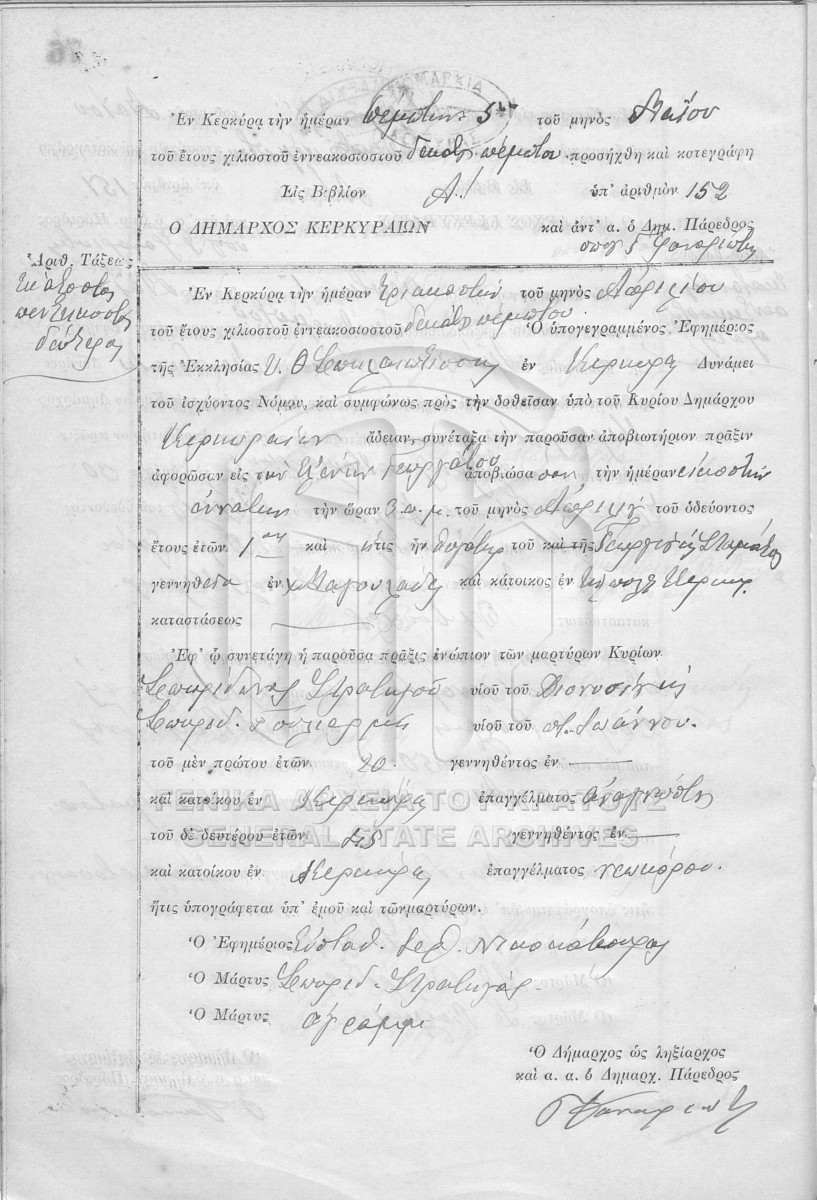 Ἐν Κερκύρᾳ τὴν ἡμέραν πέμπτην 5ην τοῦ μηνὸς Μαΐου
τοῦ ἔτους χιλιοστοῦ ἐννεακοσιοστοῦ δεκάτου πέμπτου προσήχθη καὶ κατεγράφη
Εἰς Βιβλίον Α! ὑπ' ἀριθμὸν 152
Ο ΔΗΜΑΡΧΟΣ ΚΕΡΚΥΡΑΙΩΝ καὶ ἀντ' α. ὁ Δημ. Πάρεδρος
Ἀριθ. Τάξεως
Ἑκατοστὸς
πεντηκοστὸς
δεύτερος
Ἐν Κερκύρᾳ τὴν ἡμέραν τριακοστὴν τοῦ μηνὸς Ἀπριλίου
τοῦ ἔτους χιλιοστοῦ ἐννεακοσιοστοῦ δεκάτου πέμπτου. Ὁ ὑπογεγραμμένος Ἐφημέριος
τῆς Ἐκκλησίας Υ. Θ. Σπηλαιωτίσσης ἐν Κερκύρᾳ Δυνάμει
τοῦ ἰσχύοντος Νόμου, καὶ συμφώνως πρὸς τὴν δοθεῖσαν ὑπὸ τοῦ Κυρίου Δημάρχου
Κερκυραίων ἄδειαν, συνέταξα τὴν παροῦσαν ἀποβιωτήριον πρᾶξιν
ἀφορῶσαν εἰς τὴν Ἑλένην ἀποβιώσασαν τὴν ἡμέραν εἰκοστὴν
ἐννάτην τὴν ὥραν 3 π.μ. τοῦ μηνὸς Ἀπριλίου τοῦ ὁδεύοντος
ἔτους ἐτῶν 1 καὶ ἥτις ἦν θυγάτηρ τοῦ καὶ τῆς
γεννηθεῖσα ἐν καὶ κάτοικος ἐν τῇ πόλει Κερκύρ.
καταστάσεως
Ἐφ' ᾧ συνετάγη ἡ παροῦσα πρᾶξις ἐνώπιον τῶν μαρτύρων Κυρίων
Σπυρίδωνος Στρατηγοῦ υἱοῦ τοῦ Διονυσίου καὶ
Σπυρίδ. υἱοῦ τοῦ Ἰωάννου.
τοῦ μὲν πρώτου ἐτῶν 20. γεννηθέντος ἐν
καὶ κατοίκου ἐν Κερκύρᾳ ἐπαγγέλματος ἀναγνώστου
ΓΕΝΙΚΑ ΑΡΧΕΙΑ ΤΟΥ ΚΡΑΤΟΥΣ
τοῦ δὲ δευτέρου ἐτῶν γεννηθέντος ἐν
GENERAL STATE ARCHIVES
καὶ κατοίκου ἐν Κερκύρᾳ ἐπαγγέλματος νεωκόρου.
ἥτις ὑπογράφεται ὑπ' ἐμοῦ καὶ τῶν μαρτύρων.
Ὁ Ἐφημέριος Εὐσταθ.
Ὁ Μάρτυς Σπυρίδ. Στρατηγὸς
Ὁ Μάρτυς ἀγράμμ.
Ὁ Δήμαρχος ὡς ληξίαρχος
καὶ α. α. ὁ Δημαρχ. Πάρεδρος